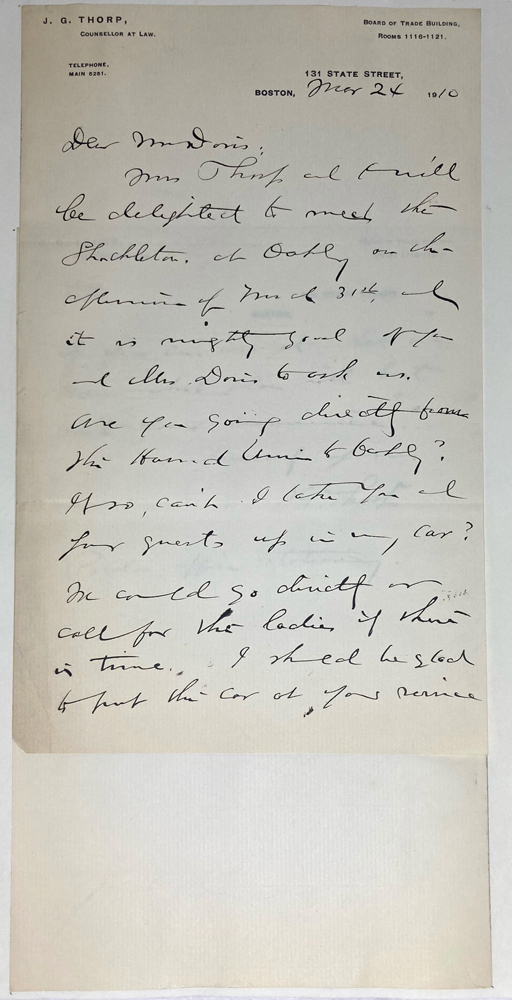 J. G. THORP,
COUNSELLOR AT LAW.
BOARD OF TRADE BUILDING,
ROOMS 1116-1121.
TELEPHONE,
MAIN 6281.
131 STATE STREET,
BOSTON, Mar 24 1910
Dear Mr Davis;
Mrs Thorp and I will
be delighted to meet the
Shackletons at Oakley on the
afternoon of March 31st, and
it is mighty good of you
and Mrs Davis to ask us.
Are you going directly from
the Harvard Union to Oakley?
If so, can't I take you and
your guests up in my car?
We could go directly or
call for the ladies if there
is time. I should be glad
to put the car at your service